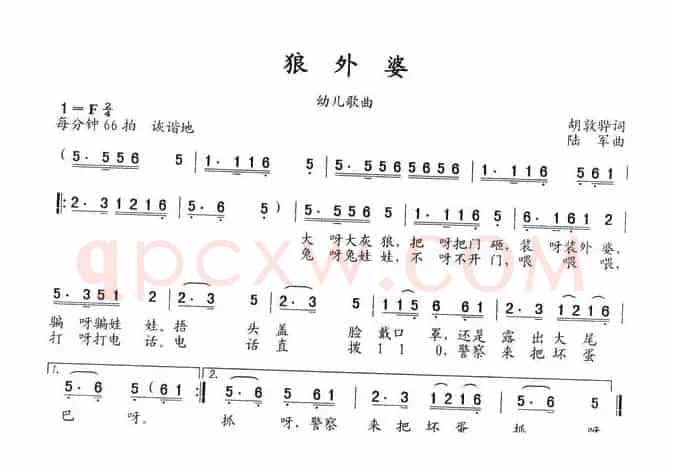 狼 外 婆
幼儿歌曲
1=F 2/4
每分钟66拍 诙谐地
胡敦骅词
陆 军曲
( 5. 5 5 6 5 | 1. 1 1 6 5 | 5. 5 5 6 5 | 1. 1 1 6 5 6 1 |
‖: 2. 3 1 2 1 6 | 5. 6 5 ) | 5. 5 5 6 5 | 1. 1 1 6 5 | 6. 1 6 1 2 |
大 呀大灰狼, 把 呀把门 砸, 装 呀装外 婆,
兔 呀兔娃娃, 不 呀不开门, 喂 喂 喂,
5. 3 5 1 2 | 2. 3 5 | 1 1 5 6 6 1 | 2. 3 1 2 1 6 |
骗 呀骗娃 娃, 捂 头 盖 脸 戴口 罩, 还是 露 出 大 尾
打 呀打电 话, 电 话 直 拨 1 1 0, 警察 来 把 坏 蛋
1. 5. 6 | 5 ( 6 1 ) :‖ 2. 5. 6 | 5 6 1 | 2. 3 1 2 1 6 | 5. 6 5
巴 呀. 抓 呀, 警察 来 把 坏 蛋 抓 呀.
qpcxw.com